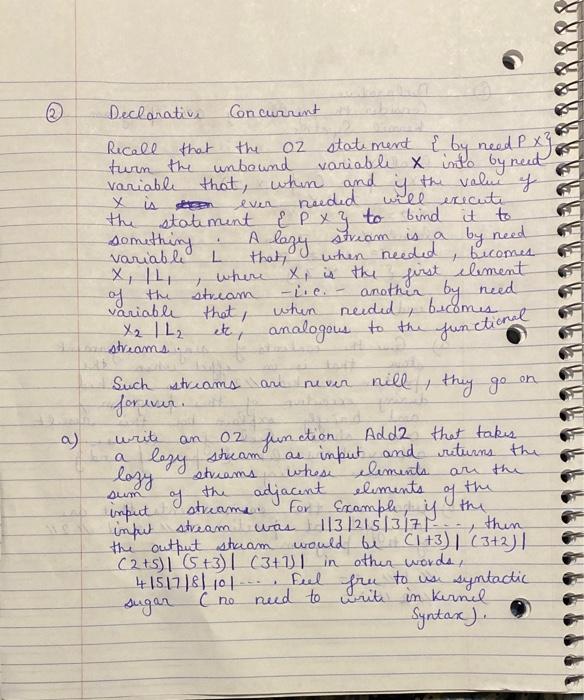 ② Declarative Concurrent
Recall that the OZ statement { by need P X}
turn the unbound variable X into by need
variable that, when and if the value of
X is ever needed will execute
the statement { P X } to bind it to
something. A lazy stream is a by need
variable L that, when needed, becomes
X1 | L1 , where X1 is the first element
of the stream -i.e. - another by need
variable that, when needed, becomes
X2 | L2 etc, analogous to the functional
streams.
Such streams are never nill, they go on
forever.
a) write an OZ function Add2 that takes
a lazy stream as input and returns the
lazy streams whose elements are the
sum of the adjacent elements of the
input streams. For Example, if the
input stream was 1|3|2|5|3|7|---, then
the output stream would be (1+3)| (3+2)|
(2+5)| (5+3)| (3+7)| in other words,
4|5|7|8|10|---. Feel free to use syntactic
sugar ( no need to write in Kernel
Syntax).